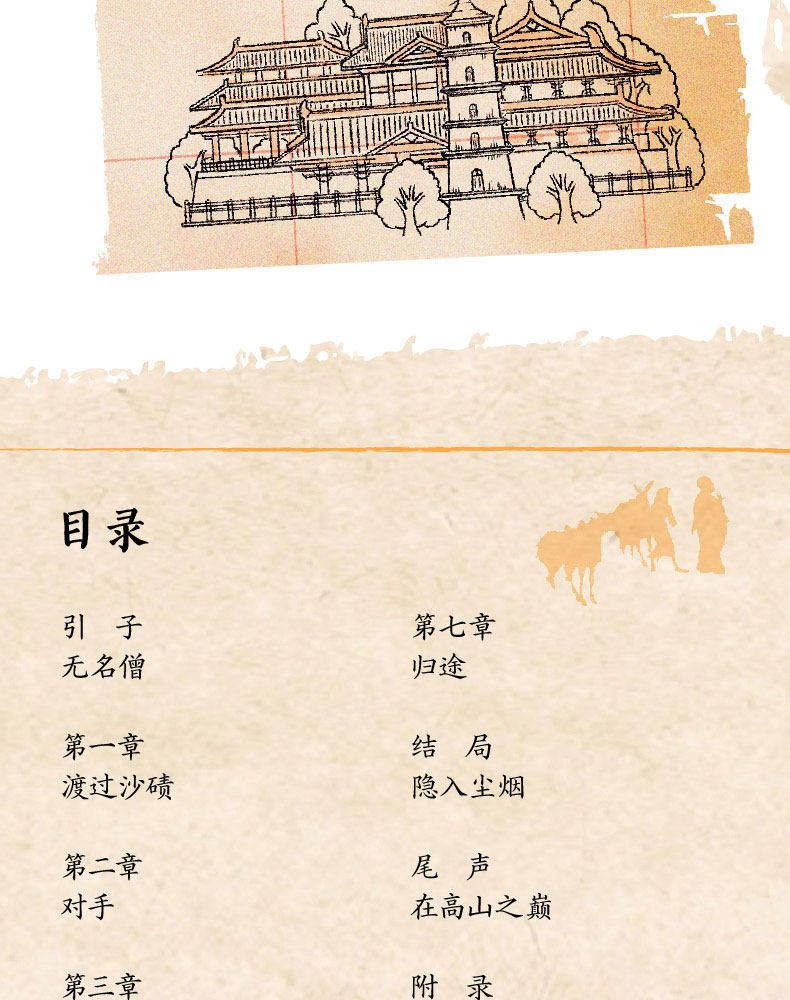 目录
引 子
无名僧
第一章
渡过沙碛
第二章
对手
第三章
第七章
归途
结 局
隐入尘烟
尾 声
在高山之巅
附 录